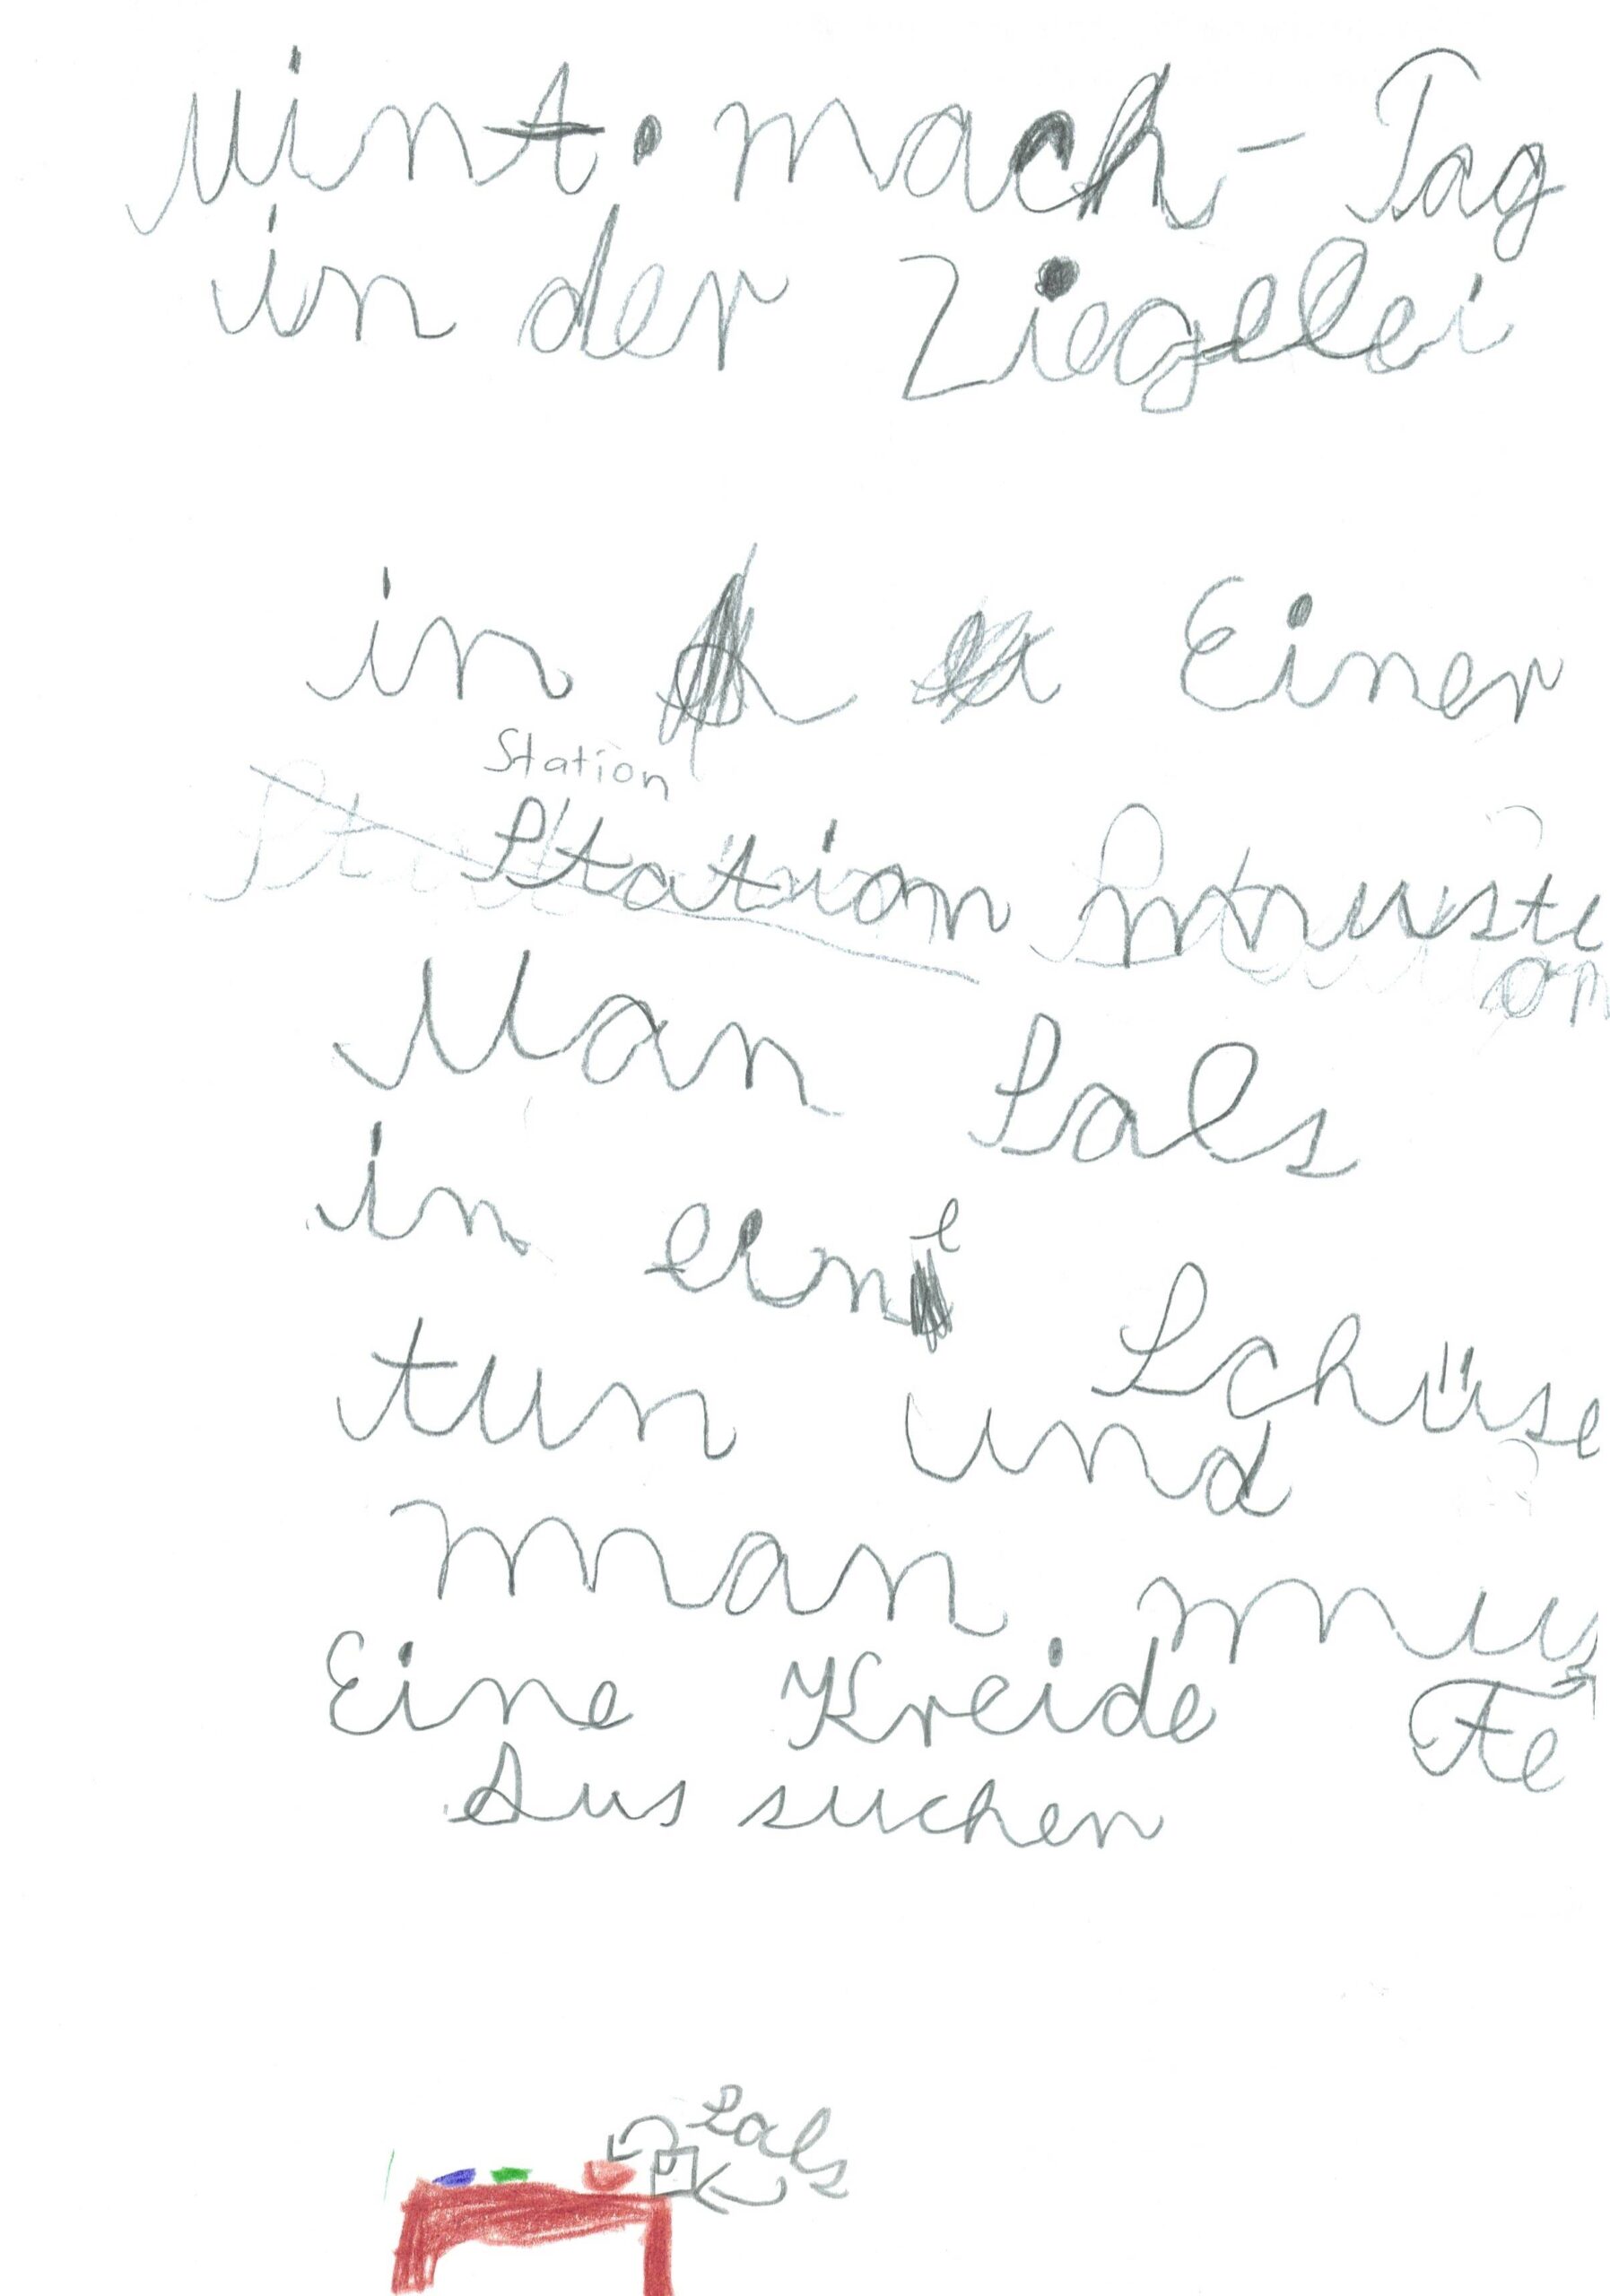 Mint • mach - Tag
in der Ziegelei
in Einer
Station
Station
Man Sals
in eine Schüse
tun und
man mus
Eine Kreide Fe
Aus suchen
Sals